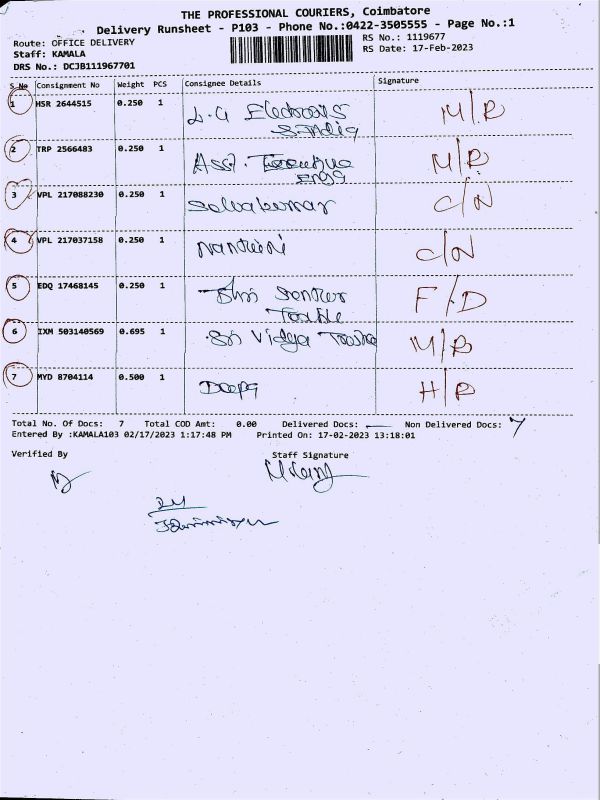 THE PROFESSIONAL COURIERS, Coimbatore
Delivery Runsheet - P103 - Phone No.:0422-3505555 - Page No.:1
Route: OFFICE DELIVERY
Staff: KAMALA
DRS No.: DCJB111967701
RS No.: 1119677
RS Date: 17-Feb-2023
S No Consignment No Weight PCS Consignee Details Signature
1 HSR 2644515 0.250 1 L.G Electronics M/R
India
2 TRP 2566483 0.250 1 Asst. Executive M/R
Engg
3 VPL 217088230 0.250 1 Selvakumar C/N
4 VPL 217037158 0.250 1 Nandhini C/N
5 EDQ 17468145 0.250 1 Shri F/D
6 IXM 503140569 0.695 1 Sri Vidya M/R
7 MYD 8704114 0.500 1 Deepa H/R
Total No. Of Docs: 7 Total COD Amt: 0.00 Delivered Docs: — Non Delivered Docs: 7
Entered By :KAMALA103 02/17/2023 1:17:48 PM Printed On: 17-02-2023 13:18:01
Verified By Staff Signature